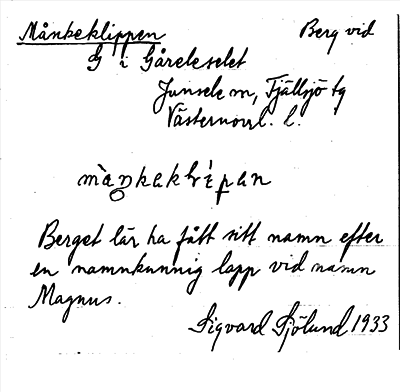 Månkeklippen Berg vid
G i Gåreleselet
Junsele sn, Fjällsjö tg
Västernorrl. l.
Berget lär ha fått sitt namn efter
en namnkunnig lapp vid namn
Magnus.
Sigvard Sjölund 1933